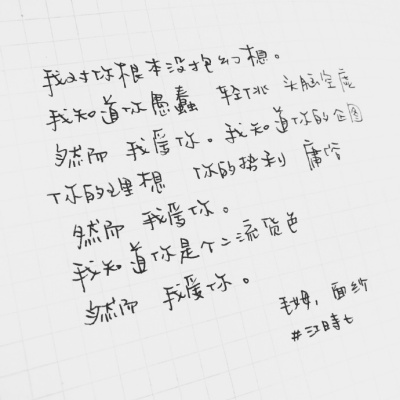 我对你根本没抱幻想。
我知道你愚蠢 轻佻 头脑空虚
然而 我爱你。我知道你的企图
你的理想 你的势利 庸俗
然而 我爱你。
我知道你是个二流货色
然而 我爱你。
毛姆，面纱
#江時七